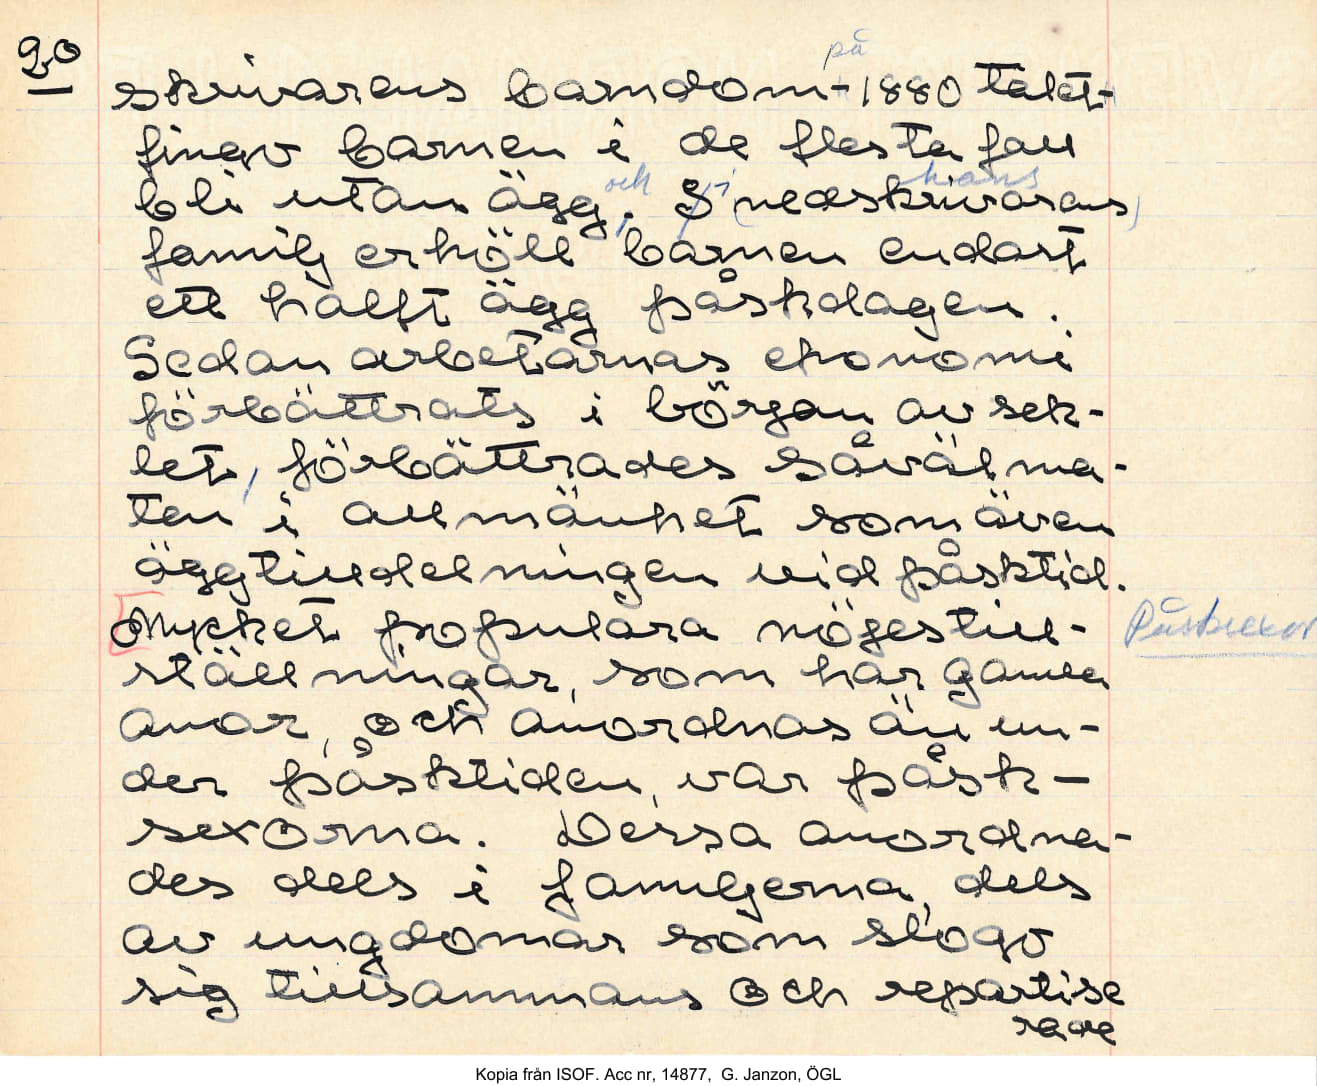 20
på
skrivarens barndom - 1880 talet -
fingo barnen i de flesta fall
och i hans
bli utan ägg. I (nedskrivarens)
familj erhöll barnen endast
ett hälft ägg påskdagen.
Sedan arbetarnas ekonomi
förbättrats i början av sek-
let, förbättrades såväl ma-
ten i allmänhet som även
äggtilldelningen vid påsktid.
Mycket populära nöjestill-
Påskexor
ställningar, som har gamla
anor, och anordnas än un-
der påsktiden, var påsk-
sexorna. Dessa anordna-
des dels i familjerna, dels
av ungdomar som slogo
sig tillsammans och repartise
rade
Kopia från ISOF. Acc nr, 14877, G. Janzon, ÖGL